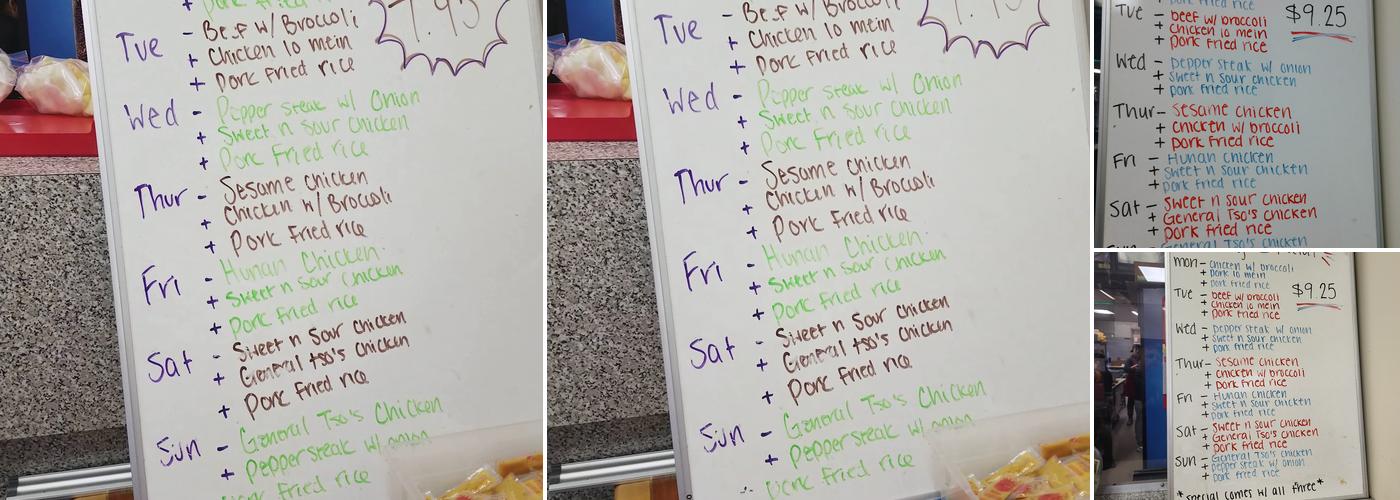 Pork fried rice
7.95
Tue - Beef w/ Broccoli
+ Chicken lo mein
+ Pork fried rice
Wed - Pepper steak w/ Onion
+ Sweet n Sour Chicken
+ Pork Fried rice
Thur - Sesame chicken
+ Chicken w/ Broccoli
+ Pork Fried rice
Fri - Hunan Chicken
+ Sweet n Sour chicken
+ Pork Fried rice
Sat - Sweet n Sour chicken
+ General tso's chicken
+ Pork Fried rice
Sun - General Tso's Chicken
+ Pepper steak w/ onion
Pork Fried rice
Tue - Beef w/ Broccoli
+ Chicken lo mein
+ Pork fried rice
Wed - Pepper steak w/ Onion
+ Sweet n Sour Chicken
+ Pork Fried rice
Thur - Sesame chicken
+ Chicken w/ Broccoli
+ Pork Fried rice
Fri - Hunan Chicken
+ Sweet n Sour chicken
+ Pork Fried rice
Sat - Sweet n Sour chicken
+ General tso's chicken
+ Pork Fried rice
Sun - General Tso's Chicken
+ Pepper steak w/ onion
Pork Fried rice
+ pork fried rice
$9.25
Tue - beef w/ broccoli
+ chicken lo mein
+ pork fried rice
Wed - pepper steak w/ onion
+ sweet n sour chicken
+ pork fried rice
Thur - sesame chicken
+ chicken w/ broccoli
+ pork fried rice
Fri - Hunan chicken
+ sweet n sour chicken
+ pork fried rice
Sat - sweet n sour chicken
+ General Tso's chicken
+ pork fried rice
Sun - General Tso's chicken
Mon - chicken w/ broccoli
+ pork lo mein
+ pork fried rice
$9.25
Tue - beef w/ broccoli
+ chicken lo mein
+ pork fried rice
Wed - pepper steak w/ onion
+ sweet n sour chicken
+ pork fried rice
Thur - sesame chicken
+ chicken w/ broccoli
+ pork fried rice
Fri - Hunan chicken
+ sweet n sour chicken
+ pork fried rice
Sat - sweet n sour chicken
+ General Tso's chicken
+ pork fried rice
Sun - General Tso's chicken
+ pepper steak w/ onion
+ pork fried rice
*special comes w/ all three*